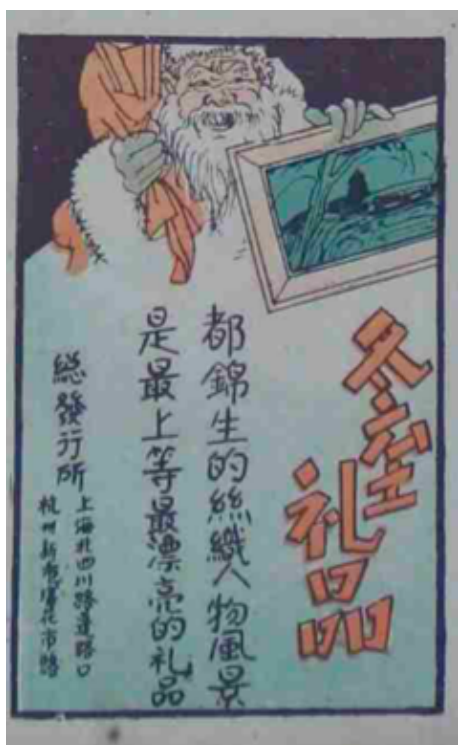 冬至礼品
都錦生的絲織人物風景
是最上等最漂亮的礼品
總發行所
上海北四川路蓬路口
杭州新市場花市路